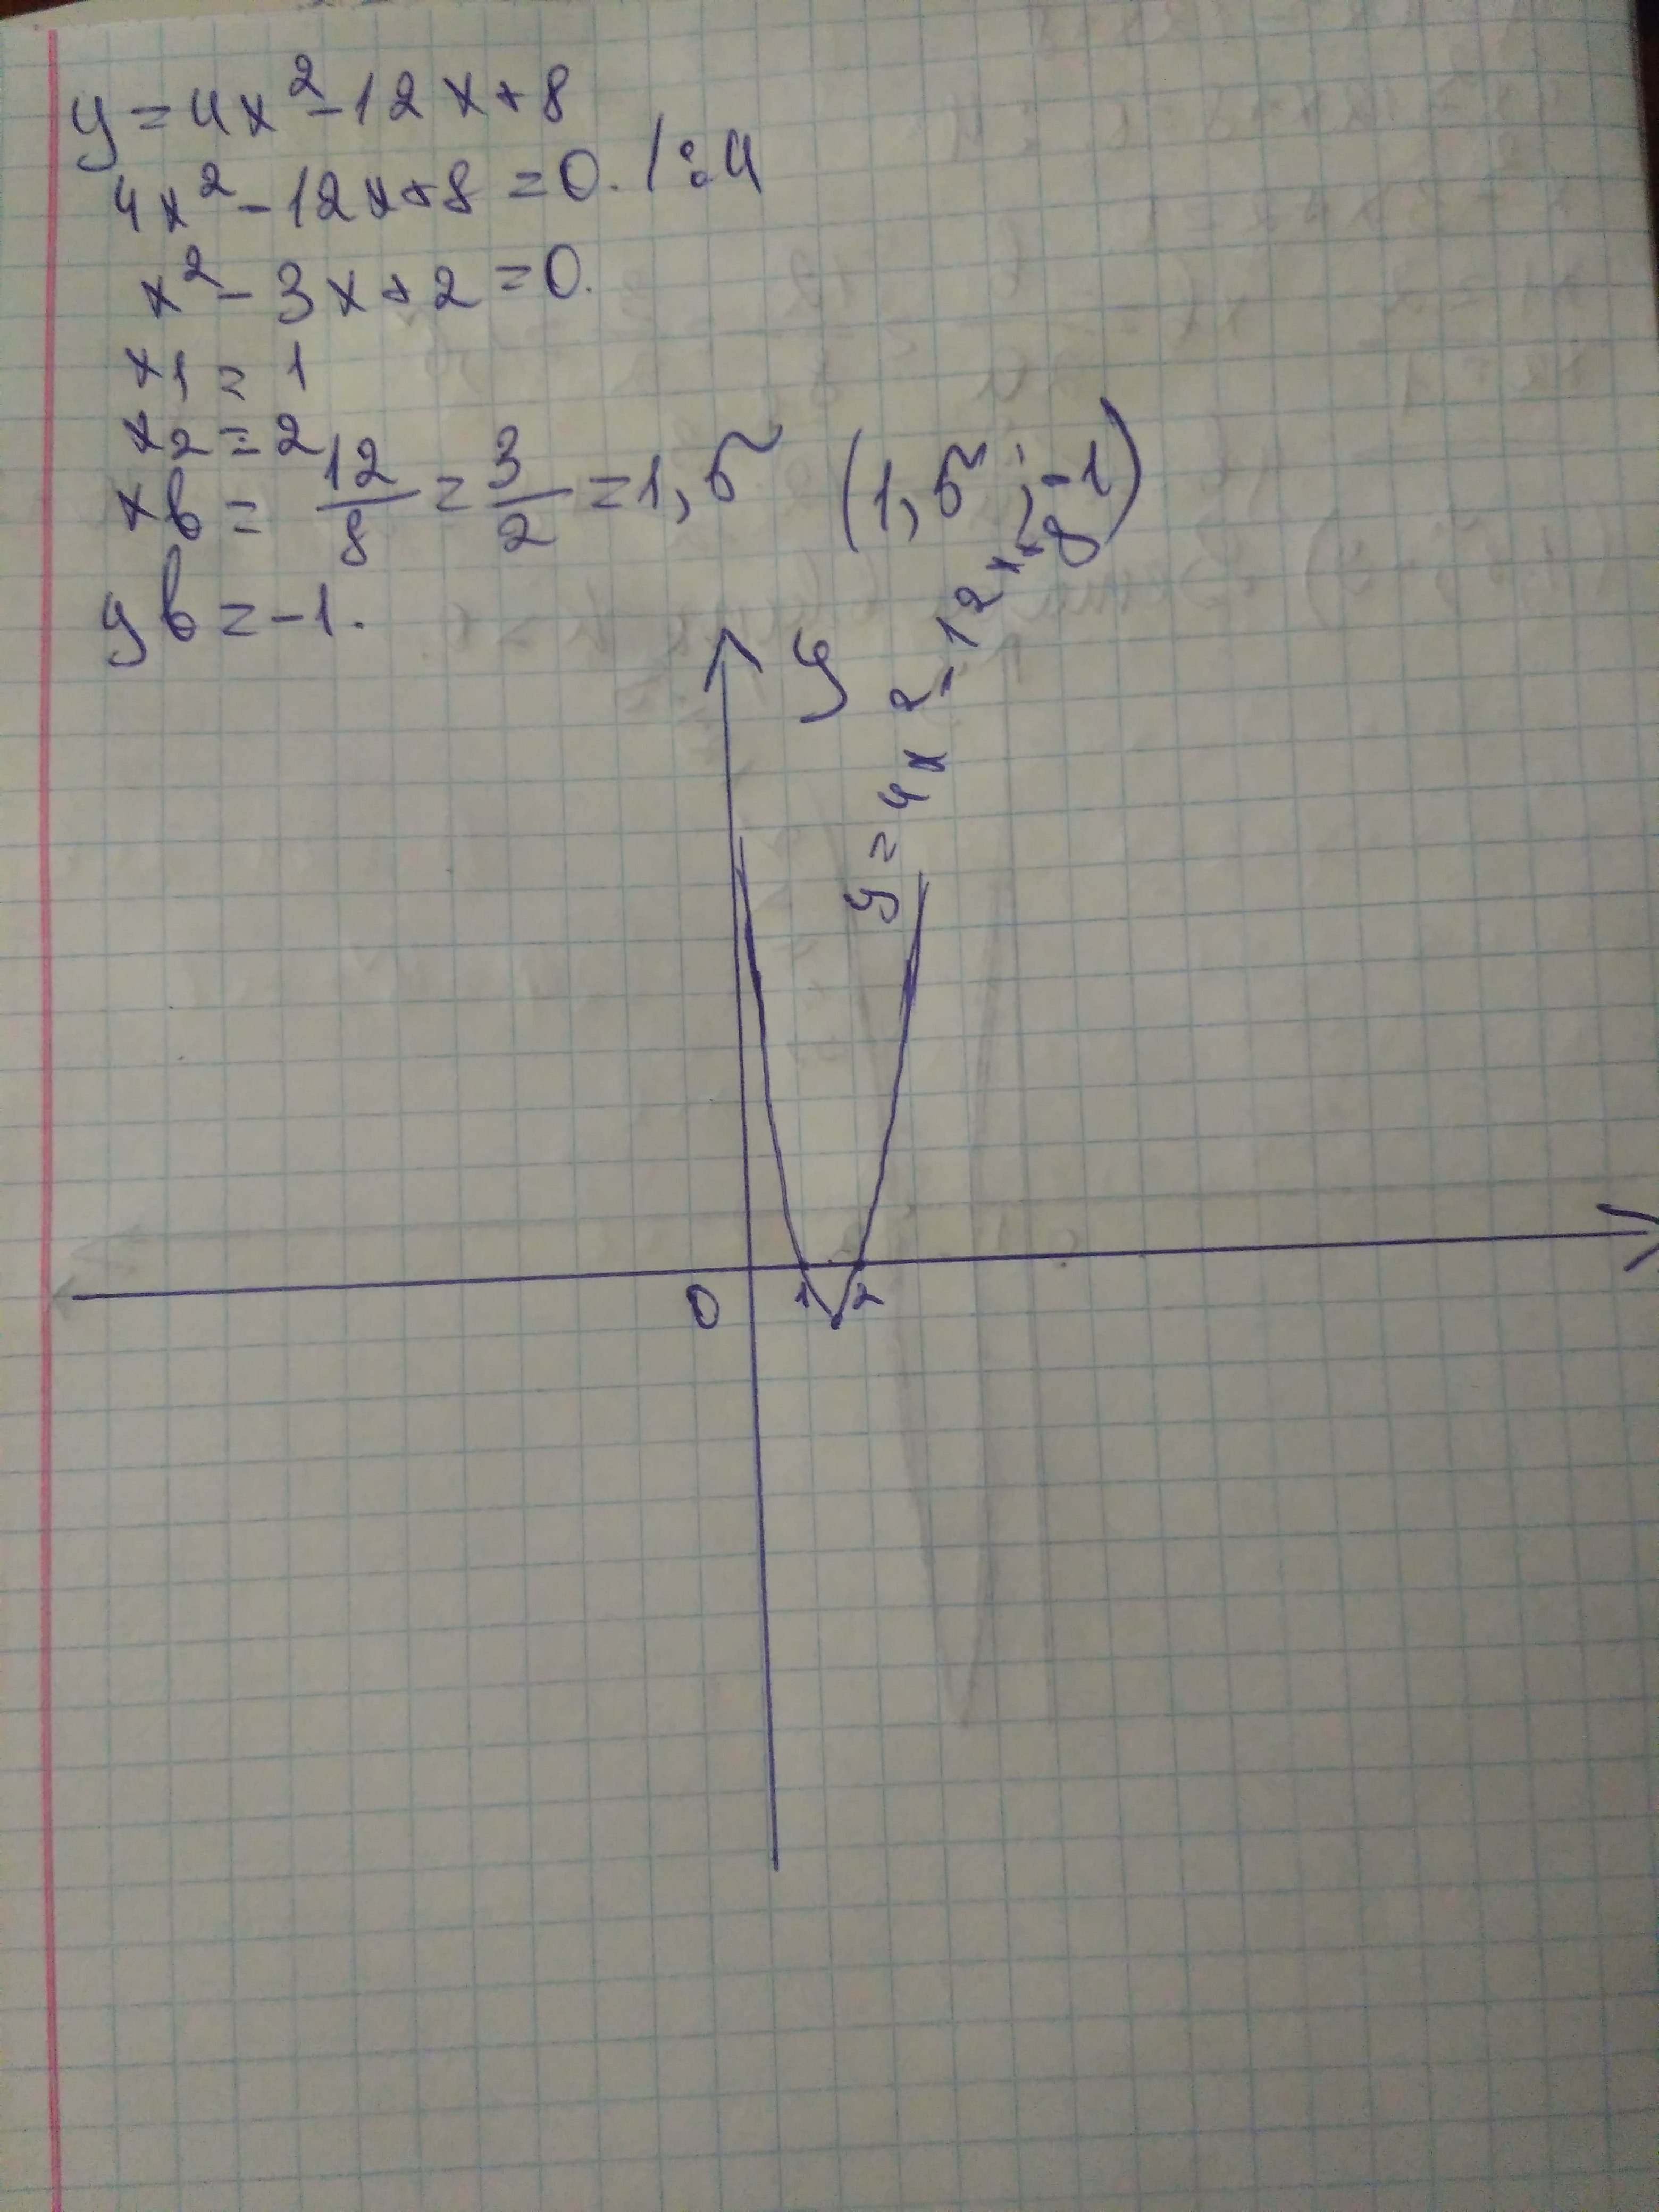 y = 4x² - 12x + 8
4x² - 12x + 8 = 0. / : 4
x² - 3x + 2 = 0.
x1 = 1
x2 = 2
xв = 12/8 = 3/2 = 1,5 (1,5 ; -1)
yв = -1.
y
y = 4x² - 12x + 8
0 1 2